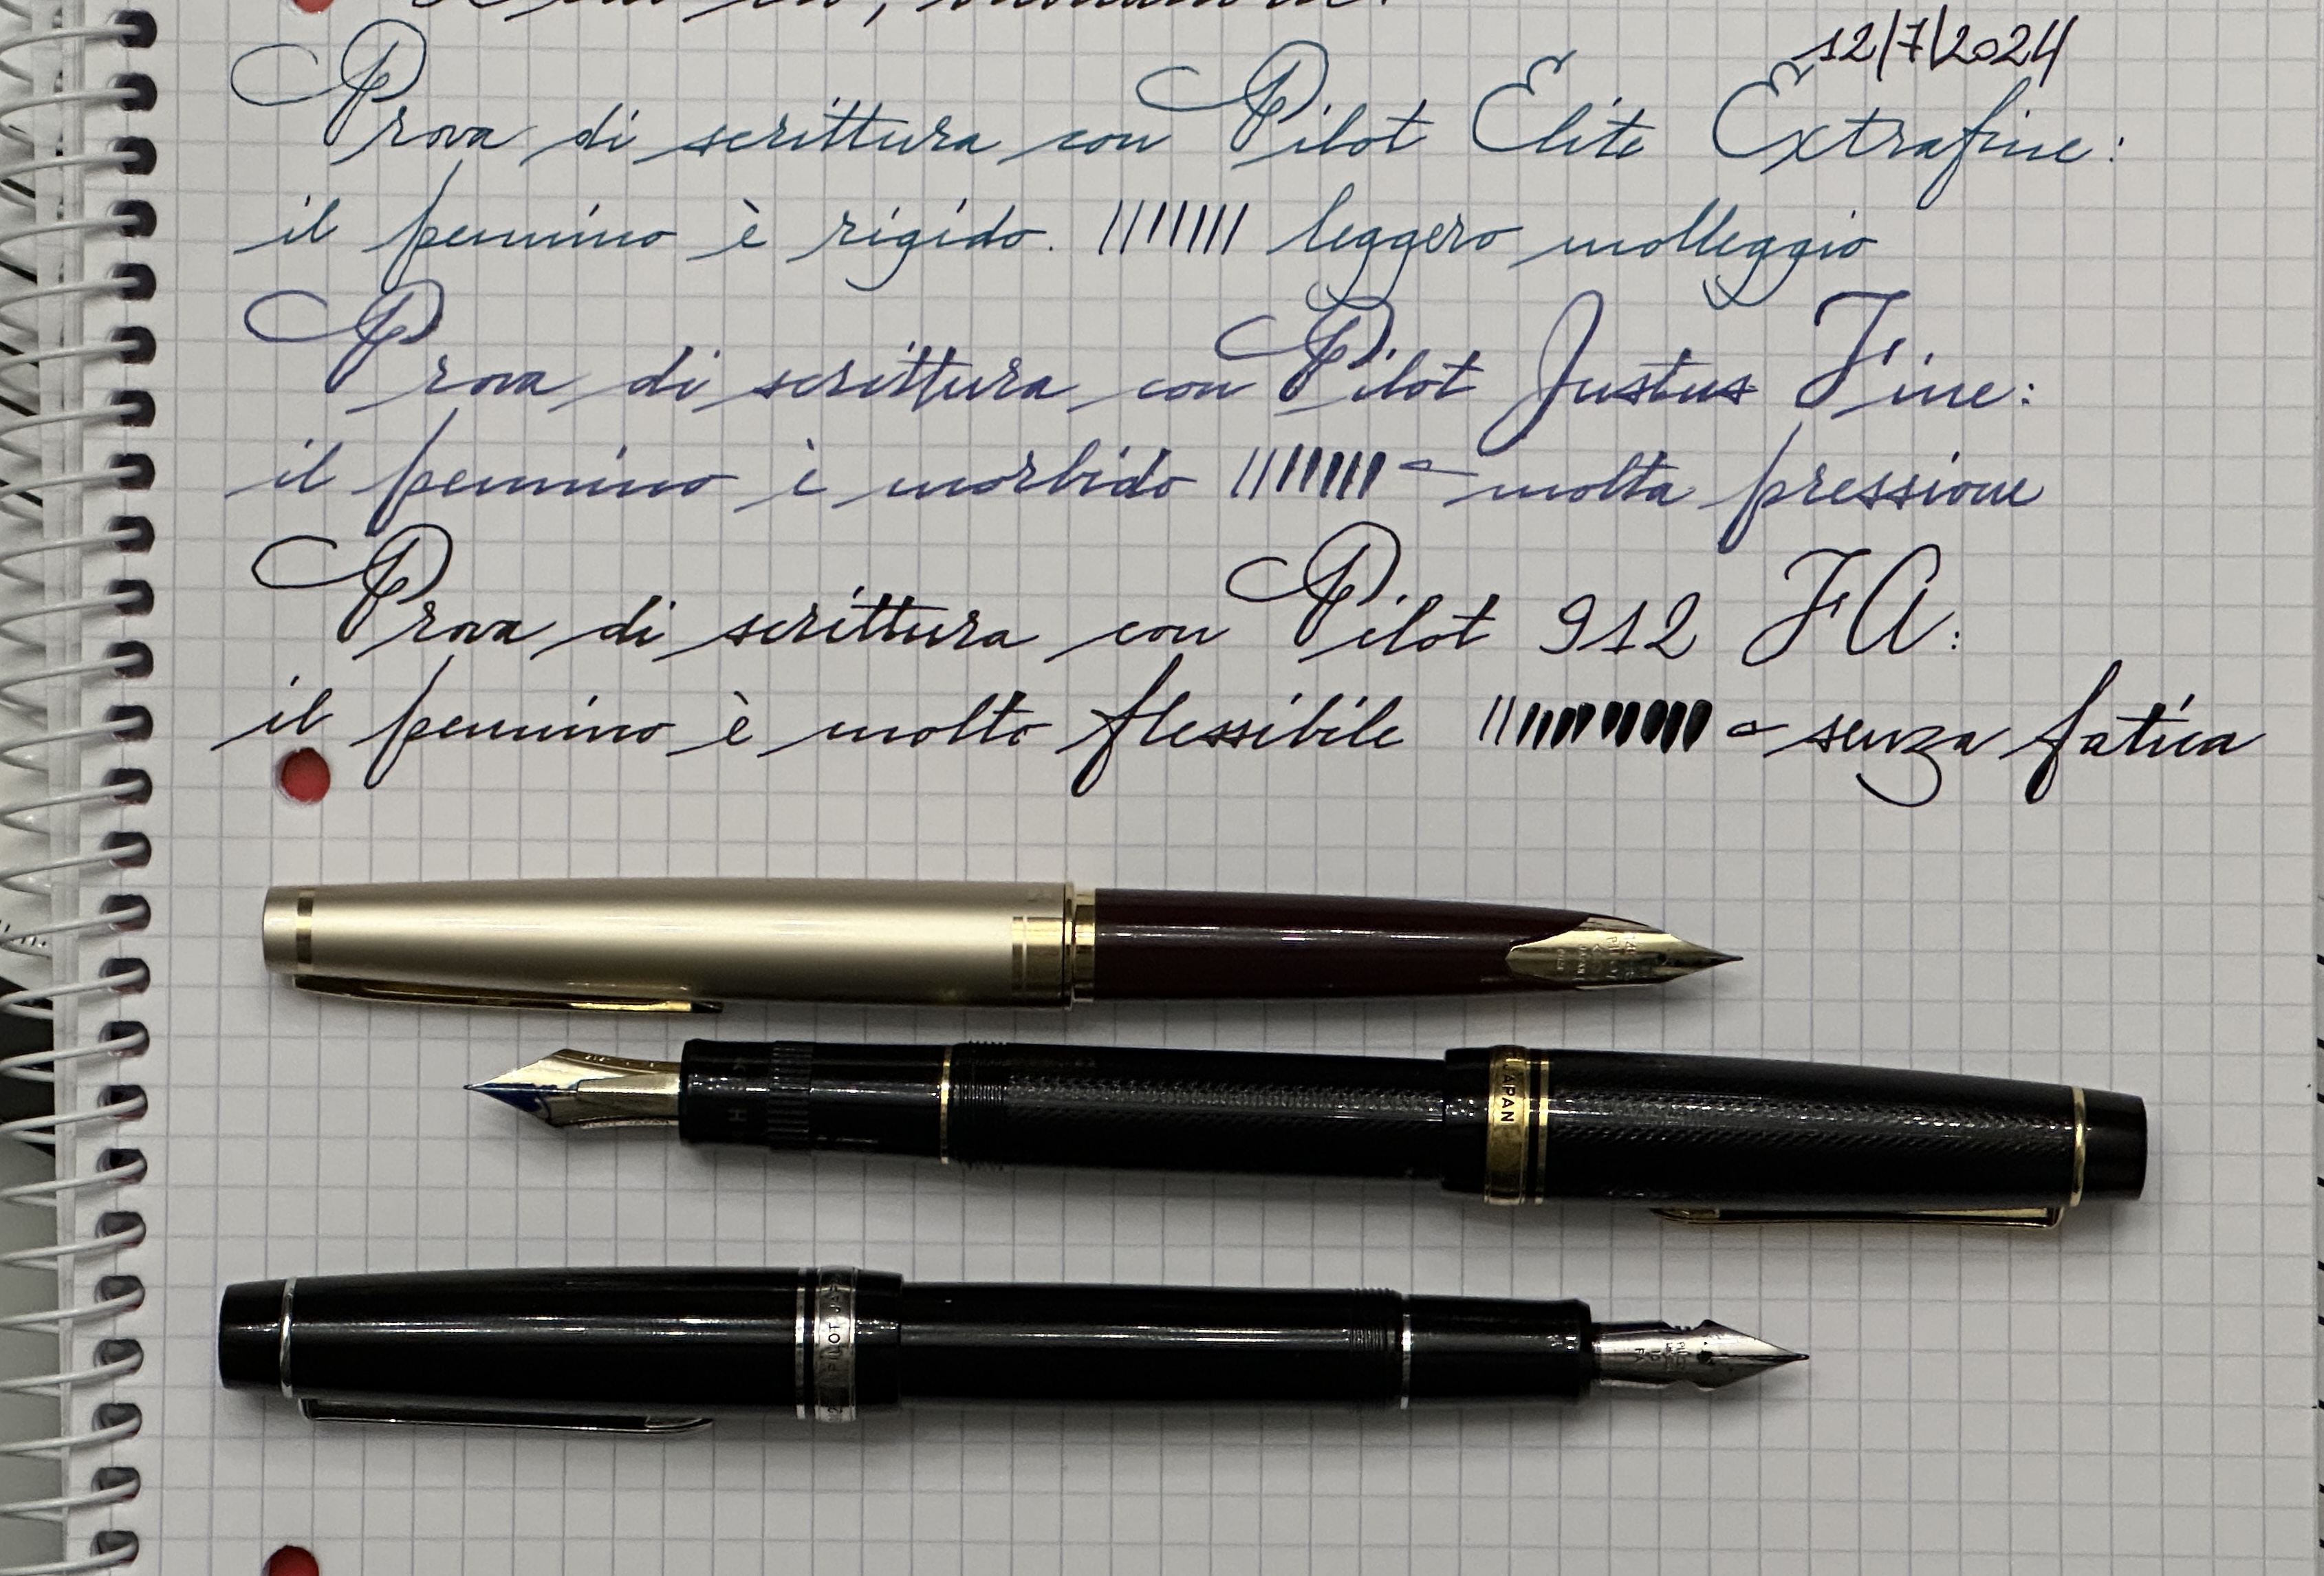 12/7/2024
Prova di scrittura con Pilot Elite Extrafine:
il pennino è rigido. leggero molleggio
Prova di scrittura con Pilot Justus Fine:
il pennino è morbido molta pressione
Prova di scrittura con Pilot 912 FA:
il pennino è molto flessibile senza fatica
JAPAN
PILOT